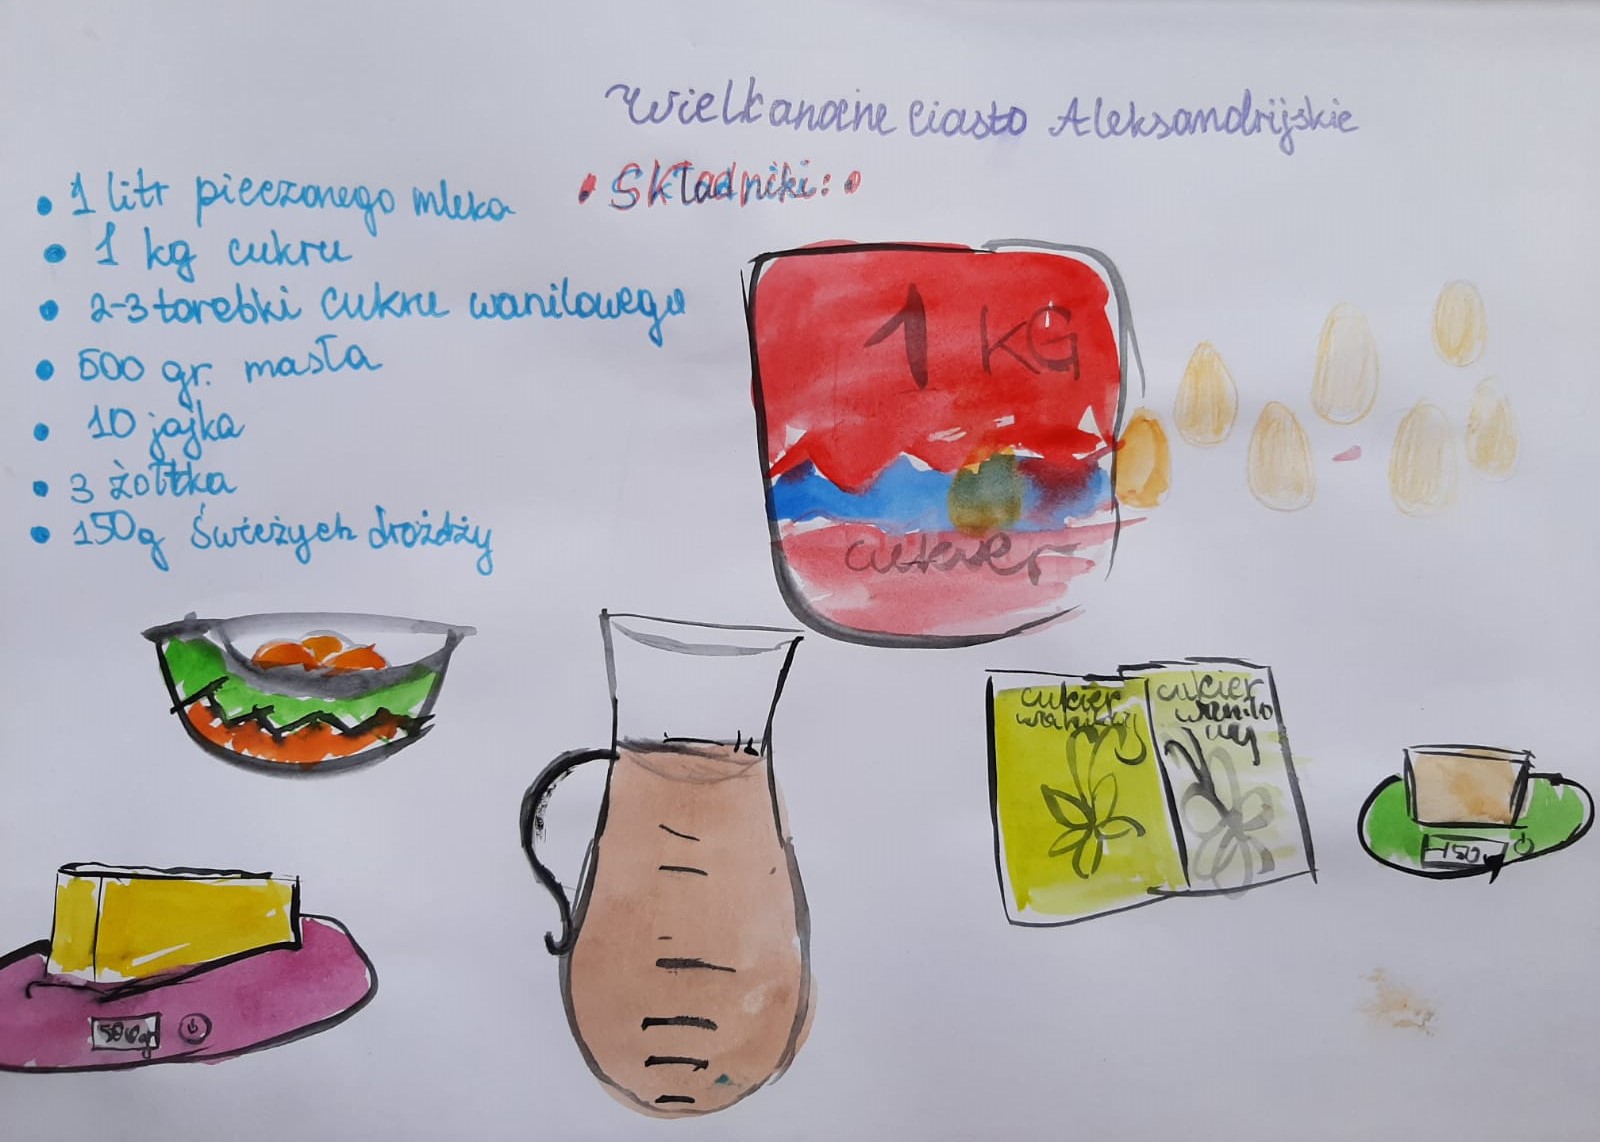 Wielkanocne ciasto Aleksandrijskie
• Składniki: •
• 1 litr pieczonego mleka
• 1 kg cukru
• 2-3 torebki cukru wanilowego
• 500 gr. masła
• 10 jajka
• 3 żołtka
• 150g świeżych drożdży
1 KG
cukier
cukier
cukier
wanilo
wy
500gr
150